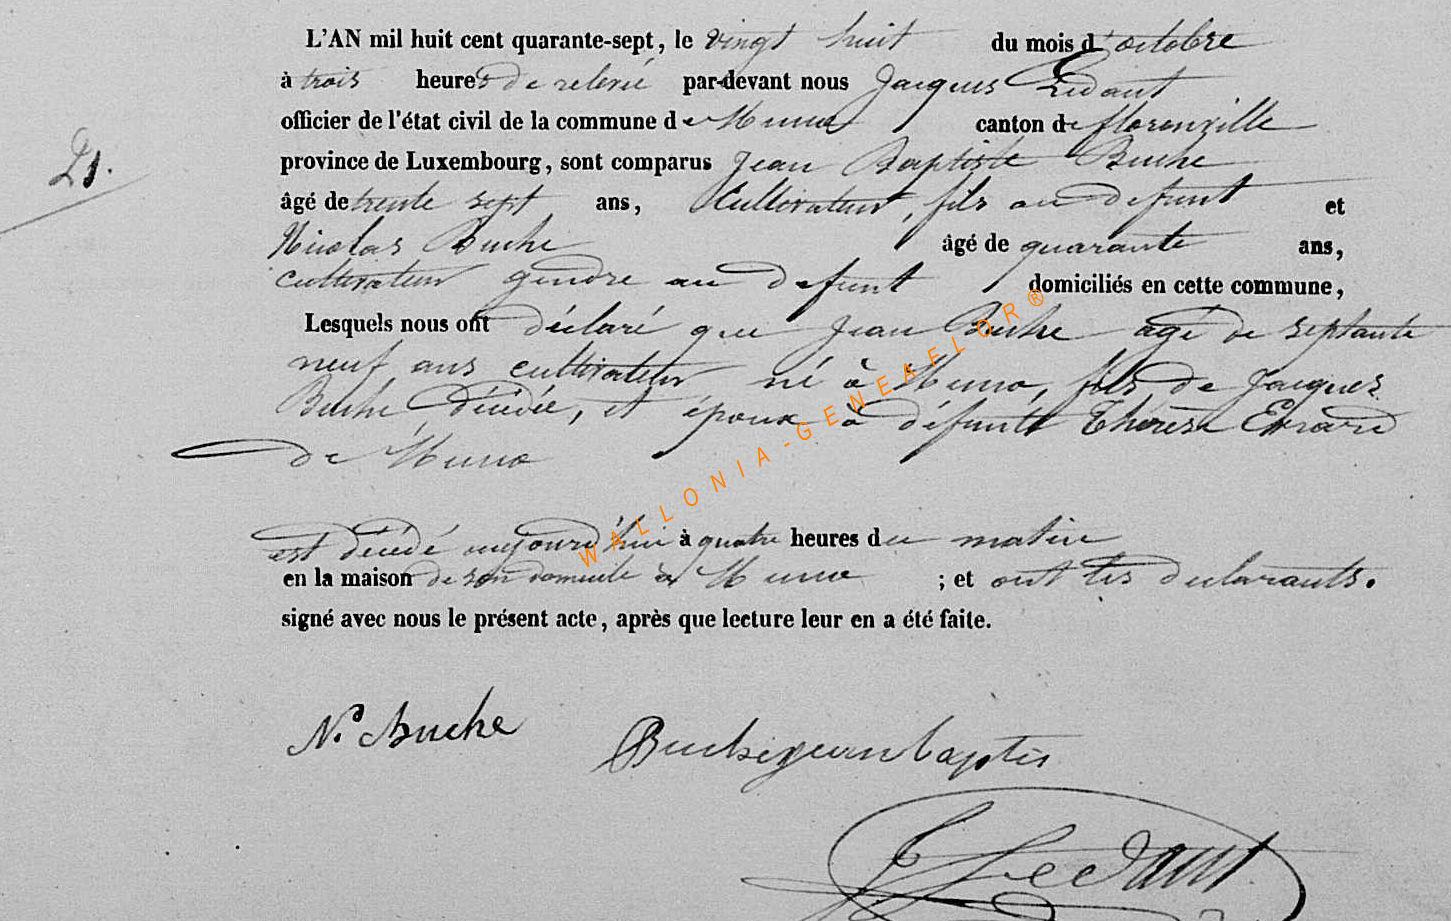 L'AN mil huit cent quarante-sept, le vingt huit du mois d'octobre
à trois heures de relevée par-devant nous Jacques Ledant
officier de l'état civil de la commune de Muno canton de florenville
21.
province de Luxembourg, sont comparus Jean Baptiste Buche
âgé de trente sept ans, Cultivateur, fils au defunt et
Nicolas Buche âgé de quarante ans,
cultivateur gendre au defunt domiciliés en cette commune,
Lesquels nous ont déclaré que Jean Buche agé de septante
neuf ans cultivateur né à Muno, fils de Jacques
Buche décédé, et époux à défunte Thérèse Evrard
de Muno
est décédé aujourd'hui à quatre heures du matin
en la maison de son domicile à Muno ; et ont les declarants.
signé avec nous le présent acte, après que lecture leur en a été faite.
WALLONIA-GENEAELOR®
N. Buche
Buche jean baptis
J Ledant